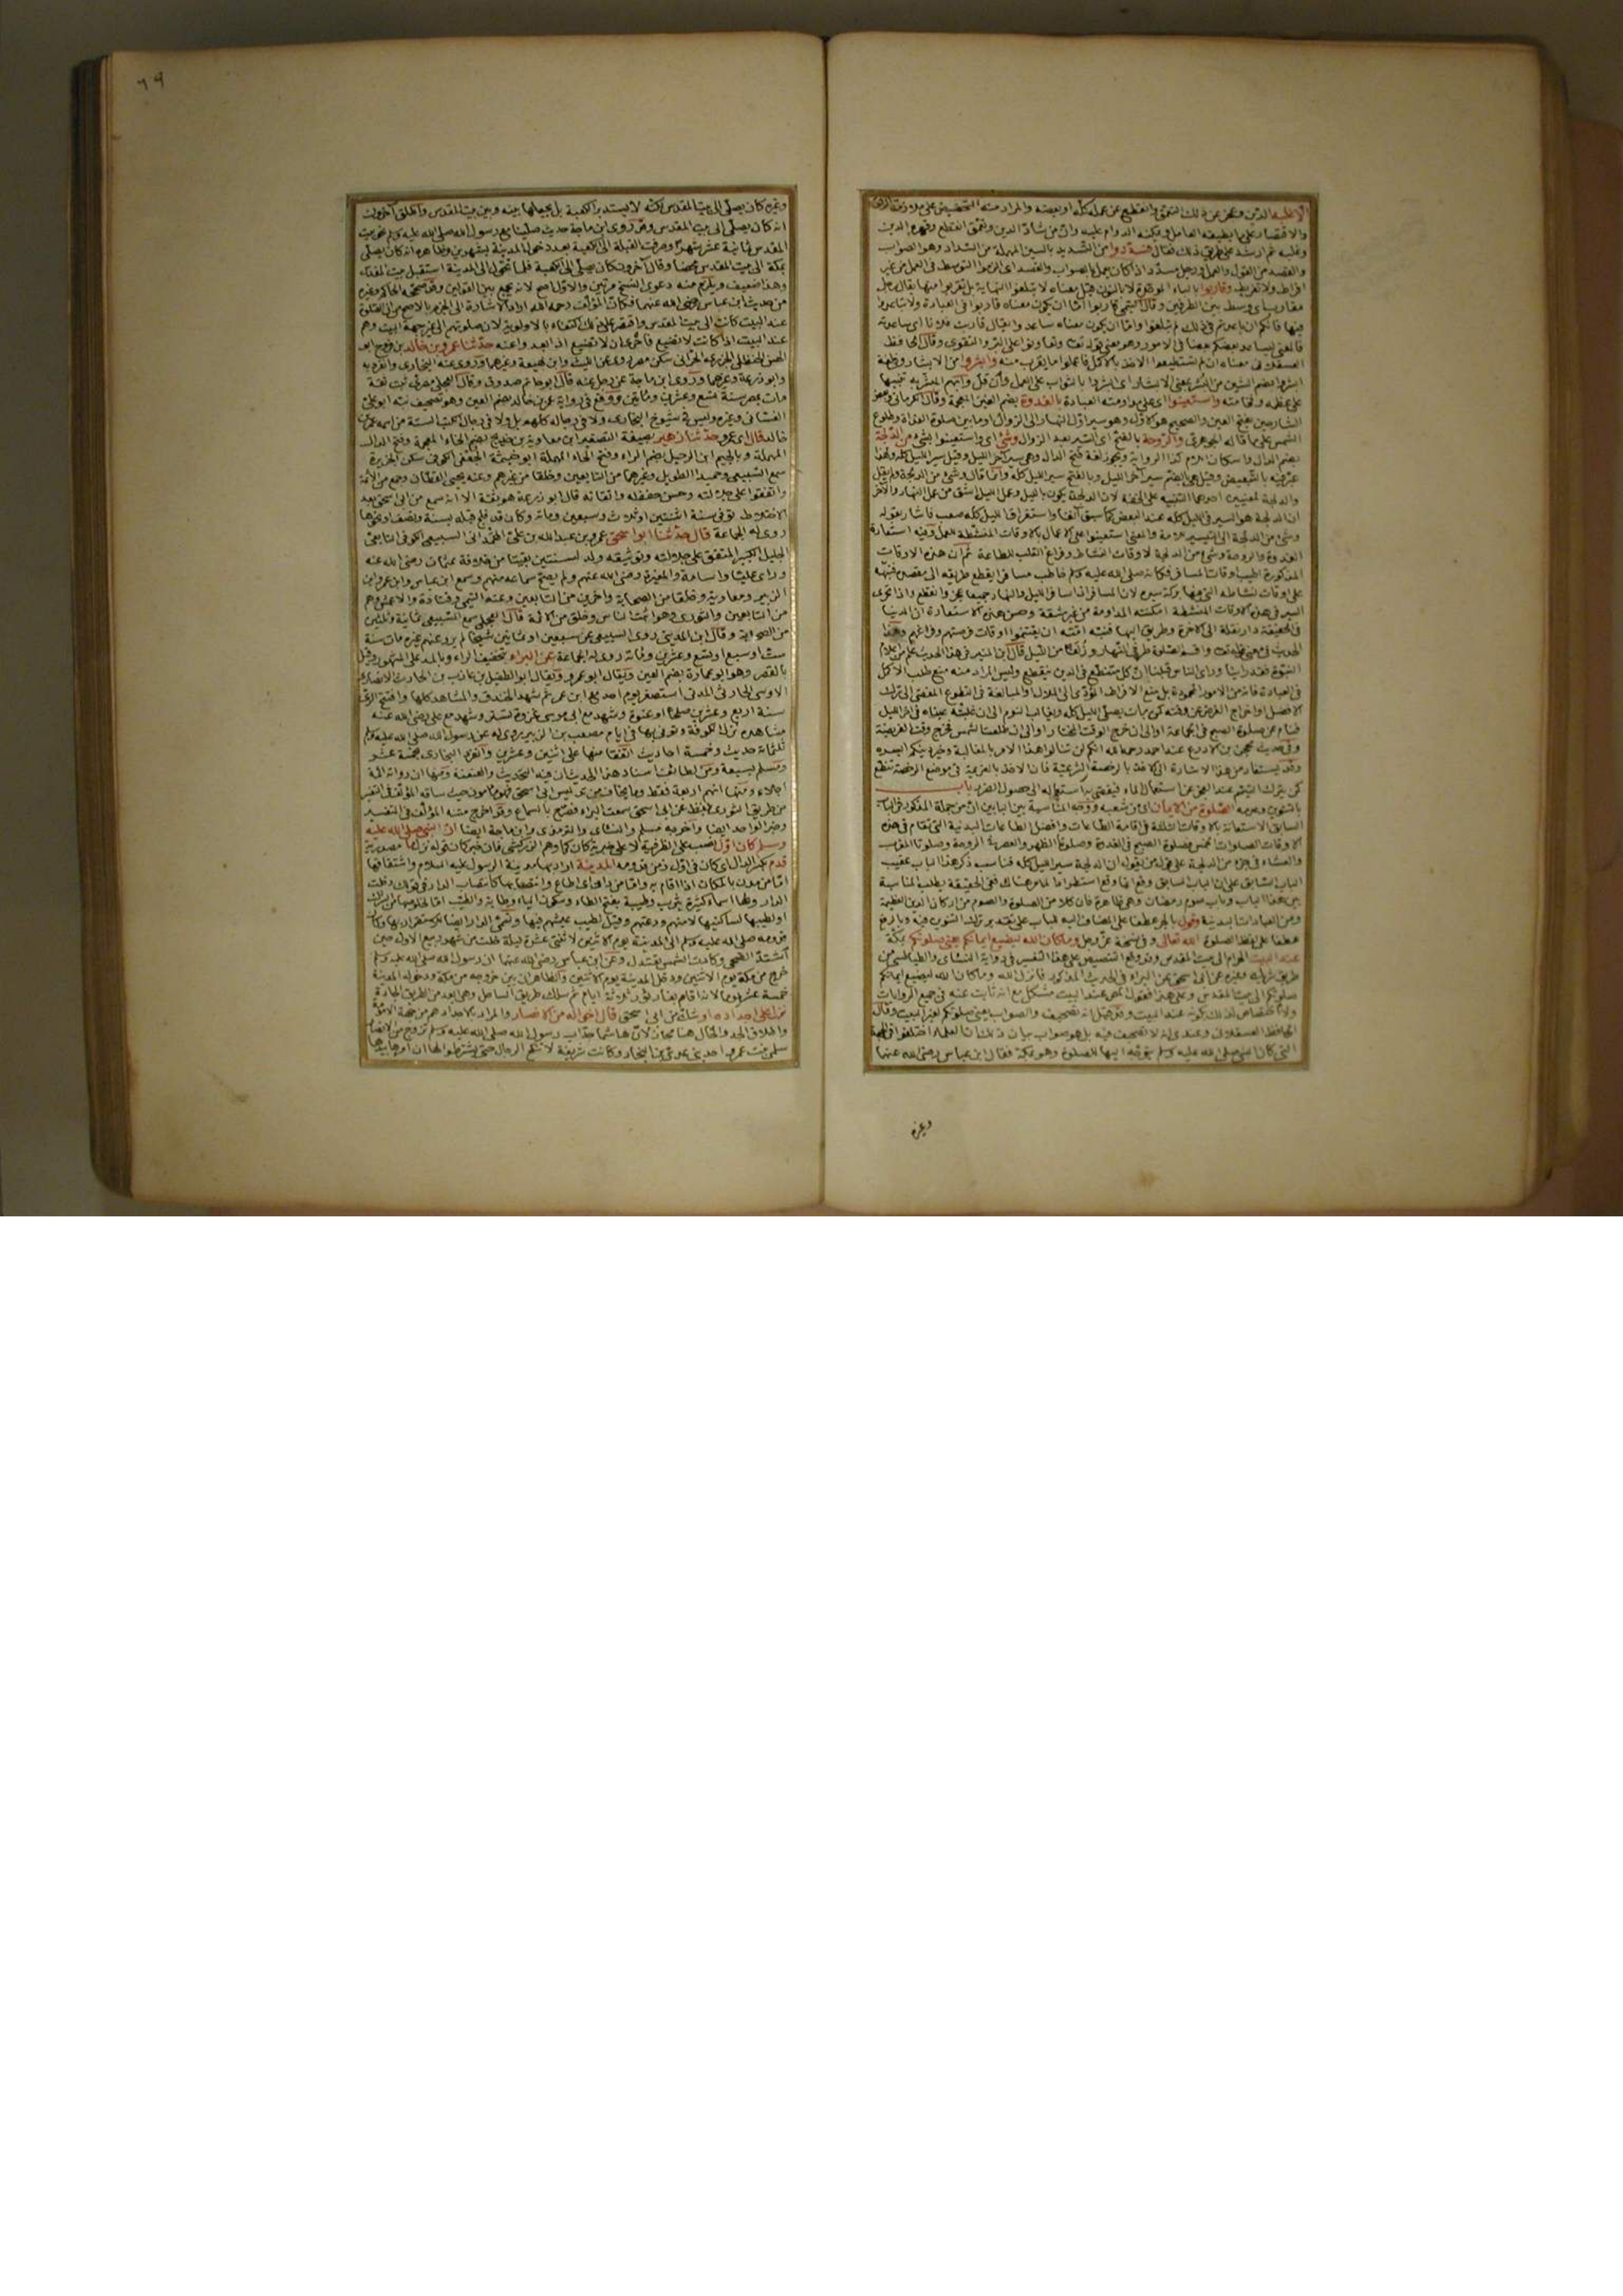 الا غلبه الدين وعجز عن ذلك التعمق وانقطع عن عمله كله او بعضه والمراد منه التحضيض على ملازمة الرفق
والاقتصار على ما يطيقه العامل ويمكنه الدوام عليه وان من شاد الدين وتعمق انقطع وقهره الدين
وغلبه ثم ارشد على طريق ذلك فقال فسددوا من التسديد بالسين المهملة من السداد وهو الصواب
والقصد من القول والعمل ورجل مسدد اذا كان يعمل بالصواب والقصد اى الزموا التوسط فى العمل من غير
افراط ولا تفريط وقاربوا بالباء الموحدة لا بالنون قيل معناه لا تبلغوا النهاية بل تقربوا منها يقال رجل
مقارب اى وسط بين الطرفين وقال التيمى قاربوا اما ان يكون معناه قاربوا فى العبادة ولا تباعدوا
فيها فانكم ان باعدتم فى ذلك لم تبلغوا واما ان يكون معناه ساعدوا يقال قاربت فلانا اى ساعدته
فالمعنى ليساعد بعضكم بعضا فى الامور وهو معنى قوله تعالى وتعاونوا على البر والتقوى وقال الحافظ
العسقلانى معناه ان لم تستطيعوا الاخذ بالاكمل فاعملوا ما يقرب منه وابشروا من الابشار
ابشروا بضم الشين من البشر بمعنى الابشار اى ابشروا بالثواب على العمل وان قل وابهم المبشر به تنبيها
على عظمه وفخامته واستعينوا اى على مداومة العبادة بالغدوة بضم الغين المعجمة وقال الكرمانى وبعض
الشارحين بفتح الغين والصحيح هو الاول وهو سير اول النهار الى الزوال او ما بين صلوة الغداة وطلوع
الشمس على ما قاله الجوهرى والروحة بالفتح اى السير بعد الزوال وشئ اى واستعينوا بشئ من الدلجة
بضم الدال واسكان اللام كذا الرواية ويجوز لغة فتح الدال وهى سير آخر الليل وقيل سير الليل كله ولهذا
عبر فيه بالتبعيض وقيل هى بالضم سير آخر الليل وبالفتح سير الليل كله وانما قال وشئ من الدلجة ولم يقل
والدلجة لمعنيين احدهما التنبيه على الخفة لان الدلجة تكون بالليل وعمل الليل اشق من عمل النهار والآخر
ان الدلجة هو السير فى الليل كله عند البعض كما سبق آنفا واستغراق الليل كله صعب فاشار بقوله
وشئ من الدلجة الى التيسير للامة والمعنى استعينوا على الاعمال بالاوقات المنشطة للعمل وفيه استعارة
الغدوة والروحة وشئ من الدلجة لاوقات النشاط وفراغ القلب للطاعة ثم ان هذه الاوقات
المذكورة اطيب اوقات المسافر فكانه صلى الله عليه وسلم خاطب مسافرا يقطع طريقه الى مقصده فنبهه
على اوقات نشاطه التى فيها بركة سيره لان المسافر اذا سافر الليل والنهار جميعا عجز وانقطع واذا تحرى
السير فى هذه الاوقات المنشطة امكنته المداومة من غير مشقة وحسن هذه الاستعارة ان الدنيا
فى الحقيقة دار نقلة الى الآخرة وطريق اليها فنبه امته ان يغتنموا اوقات فرصتهم وفراغهم وهذا
الحديث فى معنى قوله تعالى واقم الصلوة طرفى النهار وزلفا من الليل قال ابن المنير فى هذا الحديث علم من اعلام
النبوة فقد راينا وراى الناس قبلنا ان كل متنطع فى الدين ينقطع وليس المراد منه منع طلب الاكمل
فى العبادة فانه من الامور المحمودة بل منع الافراط المؤدى الى الملال والمبالغة فى التطوع المفضى الى ترك
الافضل او اخراج الفرض عن وقته كمن بات يصلى الليل كله ويغالب النوم الى ان غلبته عيناه فى آخر الليل
فنام عن صلوة الصبح فى الجماعة او الى ان خرج الوقت المختار او الى ان طلعت الشمس فخرج وقت الفريضة
وفى حديث محجن بن الادرع عند احمد رحمه الله انكم لن تنالوا هذا الامر بالمغالبة وخير دينكم اليسرة
وقد يستفاد من هذا الاشارة الى الاخذ بالرخصة الشرعية فان الاخذ بالعزيمة فى موضع الرخصة تنطع
كمن يترك التيمم عند العجز عن استعمال الماء فيفضى به استعماله الى حصول الضرر باب
بالتنوين وعدمه الصلوة من الايمان اى من شعبه ووجه المناسبة بين البابين ان من جملة المذكور فى الباب
السابق الاستعانة بالاوقات الثلثة فى اقامة الطاعات وافضل الطاعات البدنية التى تقام فى هذه
الاوقات الصلوات الخمس فصلوة الصبح فى الغدوة وصلوتا الظهر والعصر فى الروحة وصلوتا المغرب
والعشاء فى جزء من الدلجة على قول من يقول ان الدلجة سير الليل كله فناسب ذكر هذا الباب عقيب
الباب السابق على ان الباب السابق
بين هذا الباب وباب صوم رمضان وهى ظاهرة فان كلا من الصلوة والصوم من اركان الدين العظيمة
ومن العبادات البدنية وقول بالجر عطفا على المضاف اليه للباب على تقدير ترك التنوين فيه وبالرفع
عطفا على لفظ الصلوة الله تعالى وفى نسخة عز وجل وما كان الله ليضيع ايمانكم يعنى صلوتكم بمكة
عند البيت الحرام الى بيت المقدس وقد وقع التنصيص على هذا التفسير فى رواية النسائى والطيالسى من
طريق شريك وغيره عن ابى اسحق عن البراء فى الحديث المذكور فانزل الله وما كان الله ليضيع ايمانكم
صلوتكم الى بيت المقدس وعلى هذا فقول المص عند البيت مشكل مع انه ثابت عنه فى جميع الروايات
ولا اختصاص لذلك بكونه عند البيت وقد قيل انه تصحيف والصواب يعنى صلوتكم لغير البيت وقال
الحافظ العسقلانى وعندى انه لا تصحيف فيه بل هو صواب بيان ذلك ان العلماء اختلفوا فى الجهة
التى كان النبى صلى الله عليه وسلم يتوجه اليها للصلوة وهو بمكة فقال ابن عباس رضى الله عنهما
وغيره
٦٩
وغيره كان يصلى الى بيت المقدس لكنه لا يستدبر الكعبة بل يجعلها بينه وبين بيت المقدس واطلق آخرون
انه كان يصلى الى بيت المقدس وقد روى ابن ماجة حديث صلينا مع رسول الله صلى الله عليه وسلم نحو بيت
المقدس ثمانية عشر شهرا وصرفت القبلة الى الكعبة بعد دخول المدينة بشهرين وظاهره انه كان يصلى
بمكة الى بيت المقدس محضا وقال آخرون كان يصلى الى الكعبة فلما تحول الى المدينة استقبل بيت المقدس
وهذا ضعيف ويلزم منه دعوى النسخ مرتين والاول اصح لانه يجمع بين القولين وقد صححه الحاكم وغيره
من حديث ابن عباس رضى الله عنهما فكان المؤلف رحمه الله اراد الاشارة الى الجزم بالاصح من ان الصلوة
عند البيت كانت الى بيت المقدس واقتصر على ذلك اكتفاء بالاولوية لان صلوتهم الى غير جهة البيت وهم
عند البيت اذا كانت لا تضيع فاحرى ان لا تضيع اذا بعدوا عنه حدثنا عمرو بن خالد بن فروخ ابو
الحسن الحنظلى الجزرى الحرانى سكن مصر روى عن الليث وابن لهيعة وغيرهما وروى عنه البخارى وانفرد به
وابو زرعة وغيرهما وروى ابن ماجة عن رجل عنه قال ابو حاتم صدوق وقال العجلى مصرى ثبت ثقة
مات بمصر سنة تسع وعشرين ومأتين ووقع فى رواية عمر بن خالد بضم العين وهو تصحيف نبه ابو على
الغسانى وغيره وليس فى شيوخ البخارى ولا فى رجاله كلهم بل ولا فى رجال الكتب الستة من اسمه عمر بن
خالد قال اى عمرو حدثنا زهير بصيغة التصغير ابن معاوية بن حديج بضم الحاء المهملة وفتح الدال
المهملة وبالجيم ابن الرحيل بضم الراء وفتح الحاء المهملة ابو خيثمة الجعفى الكوفى سكن الجزيرة
سمع السبيعى وحميدا الطويل وغيرهما من التابعين وخلقا من غيرهم وعنه يحيى القطان وجمع من الائمة
واتفقوا على جلالته وحسن حفظه واتقانه قال ابو زرعة هو ثقة الا انه سمع من ابى اسحق بعد
الاختلاط توفى سنة اثنتين او ثلاث وسبعين ومائة وكان قد فلج قبله بسنة ونصف او نحوها
روى له الجماعة قال حدثنا ابو اسحق عمرو بن عبد الله بن على الهمدانى السبيعى الكوفى التابعى
الجليل الكبير المتفق على جلالته وتوثيقه ولد لسنتين بقيتا من خلافة عثمان رضى الله عنه
وراى عليا واسامة والمغيرة رضى الله عنهم ولم يصح سماعه منهم وسمع ابن عباس وابن عمر وابن
الزبير ومعاوية وخلقا من الصحابة وآخرين من التابعين وعنه التيمى وقتادة والاعمش وهم
من التابعين والثورى وهو اثبت الناس وخلق من الائمة قال العجلى سمع السبيعى ثمانية وثلثين
من الصحابة وقال ابن المدينى روى السبيعى عن سبعين او ثمانين شيخا لم يرو عنهم غيره مات سنة
ست او سبع او تسع وعشرين ومائة روى له الجماعة عن البراء بتخفيف الراء وبالمد على المشهور وقيل
بالقصر وهو ابو عمارة بضم العين ويقال ابو عمرو ويقال ابو الطفيل بن عازب بن الحارث الانصارى
الاوسى الحارثى المدنى استصغر يوم احد مع ابن عمر ثم شهد الخندق والمشاهد كلها وافتتح الرى
سنة اربع وعشرين صلحا او عنوة وشهد مع ابى موسى غزوة تستر وشهد مع على رضى الله عنه
مشاهده نزل الكوفة وتوفى بها فى ايام مصعب بن الزبير روى له عن رسول الله صلى الله عليه وسلم
ثلثمائة حديث وخمسة احاديث اتفقا منها على اثنين وعشرين وانفرد البخارى بخمسة عشر
ومسلم بستة ومن لطائف اسناد هذا الحديث ان فيه التحديث والعنعنة ومنها ان رواته ائمة
اجلاء ومنها انهم اربعة فقط وما يخاف من تدليس ابى اسحق فهو مامون حيث ساقه المؤلف فى التفسير
من طريق الثورى بلفظ عن ابى اسحق سمعت البراء فصرح بالسماع وقد اخرج متنه المؤلف فى التفسير
وخبر الواحد ايضا واخرجه مسلم والنسائى والترمذى وابن ماجة ايضا ان النبى صلى الله عليه
وسلم كان اول نصب على الظرفية لا على خبرية كان كما وهم الزركشى فان خبر كان قوله نزل ما مصدرية
قدم بكسر الدال اى كان فى اول زمن قدومه المدينة اراد بها مدينة الرسول عليه السلام واشتقاقها
اما من مدن بالمكان اذا اقام به واما من دان اى اطاع وانتصابها كانتصاب الدار فى قولك دخلت
الدار ولها اسماء كثيرة يثرب وطيبة بفتح الطاء وسكون الياء وطابة والطيب اما لخلوصها من الشرك
او لطيبها لساكنيها لامنهم ودعتهم وقيل لطيب عيشهم فيها وتسمى الدار ايضا للاستقرار بها وكان
قدومه صلى الله عليه وسلم الى المدينة يوم الاثنين لاثنتى عشرة ليلة خلت من شهر ربيع الاول حين
اشتد الضحى وكادت الشمس تعتدل وعن ابن عباس رضى الله عنهما ان رسول الله صلى الله عليه وسلم
خرج من مكة يوم الاثنين ودخل المدينة يوم الاثنين والظاهر ان بين خروجه من مكة ودخوله المدينة
خمسة عشر يوما لانه اقام بغار ثور ثلاثة ايام ثم سلك طريق الساحل وهى ابعد من الطريق الجادة
نزل على اجداده او شك من ابى اسحق قال اخواله من الانصار والمراد بالاجداد هم من جهة الامومة
واطلاق الجد والخال هنا مجاز لان هاشما جد اب رسول الله صلى الله عليه وسلم تزوج من الانصار
سلمى بنت عمرو احد بنى عدى بن النجار وكانت شريفة لا تنكح الرجال حتى يشترطوا لها ان امرها بيدها